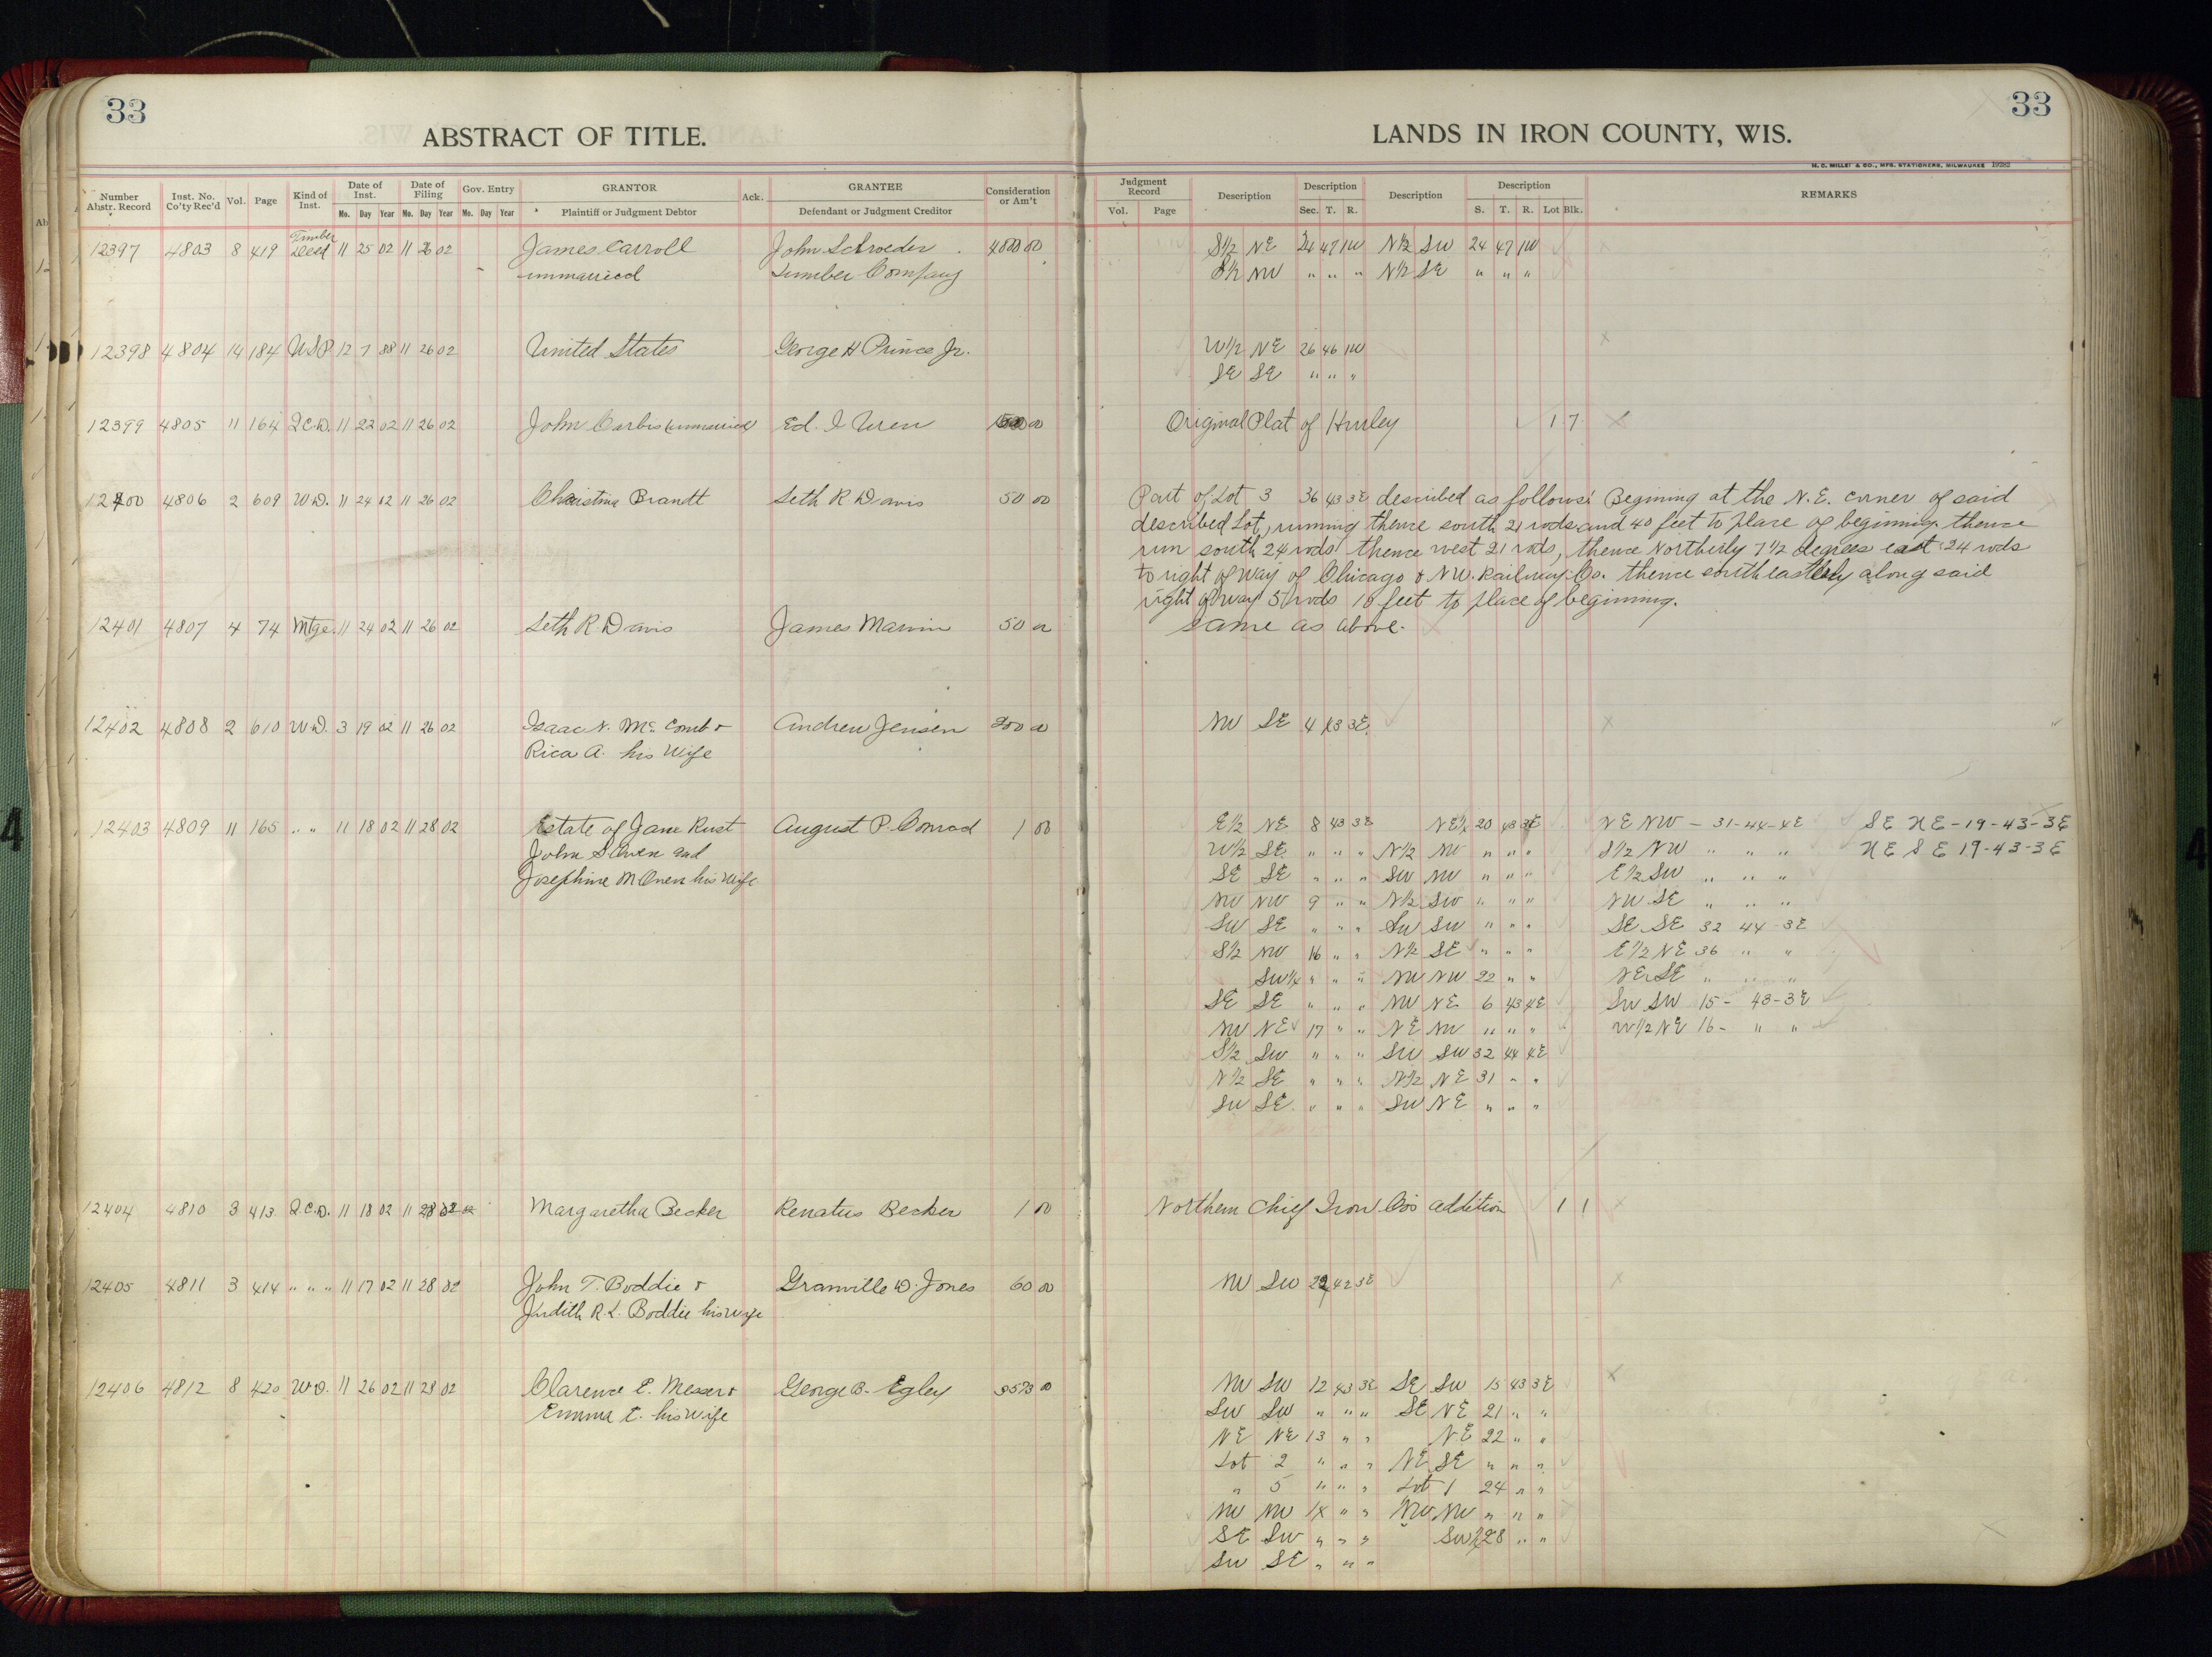 33
ABSTRACT OF TITLE.
Number Abstr. Record
Inst. No. Co'ty Rec'd
Vol.
Page
Kind of Inst.
Date of Inst.
Mo. Day Year
Date of Filing
Mo. Day Year
Gov. Entry
Mo. Day Year
GRANTOR
Plaintiff or Judgment Debtor
Ack.
GRANTEE
Defendant or Judgment Creditor
Consideration or Am't
12397 4803 8 419 Timber Deed 11 25 02 11 26 02 James Carroll John Schroeder 4000 00
unmarried Lumber Company
12398 4804 14 184 U.S.P. 12 7 88 11 26 02 United States George H Prince Jr.
12399 4805 11 164 Q.C.D. 11 22 02 11 26 02 John Carbis (unmarried) Ed. I Uren
12400 4806 2 609 W.D. 11 24 02 11 26 02 Christina Brandt Seth R Davis 50 00
12401 4807 4 74 Mtge. 11 24 02 11 26 02 Seth R Davis James Marvin 50 00
12402 4808 2 610 W.D. 3 19 02 11 26 02 Isaac N. Mc Comb & Andrew Jensen 200 00
Rica A. his Wife
12403 4809 11 165 " " 11 18 02 11 28 02 Estate of Jane Rust August P. Conrad 1 00
John S Owen and
Josephine M Owen his Wife
12404 4810 3 413 Q.C.D. 11 18 02 11 28 02 Margaretha Becker Renatus Becker 1 00
12405 4811 3 414 " " " 11 17 02 11 28 02 John T. Boddie & Granville D. Jones 60 00
Judith R L. Boddie his wife
12406 4812 8 420 W.D. 11 26 02 11 28 02 Clarence E. Messer & George B. Egley
Emma E. his wife
33
LANDS IN IRON COUNTY, WIS.
H. C. MILLER & CO., MFG. STATIONERS, MILWAUKEE 19282
Judgment Record
Vol. Page
Description
Description
Sec. T. R.
Description
Description
S. T. R. Lot Blk.
REMARKS
S½ NE 24 47 1W N½ SW 24 47 1W
S½ NW " " " N½ SE " " "
W½ NE 26 46 1W
SE SE " " "
Original Plat of Hurley 1 7
Part of Lot 3 36 43 3E described as follows: Begining at the N.E. corner of said
described Lot, running thence south 21 rods and 40 feet to place of begining. thence
run south 24 rods thence west 21 rods, thence Northerly 7½ degrees east 24 rods
to right of way of Chicago & NW. Railway Co. thence southeasterly along said
right of way 5 rods 10 feet to place of beginning.
same as above.
NW SE 4 43 3E
E½ NE 8 43 3E NE¼ 20 43 3E NE NW - 31-44-4E SE NE-19-43-3E
W½ SE " " " N½ NW " " " S½ NW " " " NE SE 19-43-3E
SE SE " " " SW NW " " " E½ SW " " "
NW NW 9 " " N½ SW " " " NW SE " " "
SW SE " " " SW SW " " " SE SE 32 44-3E
S½ NW 16 " " N½ SE " " " E½ NE 36 " "
SW¼ " " " NW NW 22 " " NE SE " " "
SE SE " " " NW NE 6 43 4E SW SW 15- 43-3E
NW NE 17 " " NE NW " " " W½ NE 16- " "
S½ SW " " " SW SW 32 44 4E
N½ SE " " " N½ NE 31 " "
SW SE " " " SW NE " " "
Northern Chief Iron Co's addition 1 1
NW SW 22 42 3E
NW SW 12 43 3E SE SW 15 43 3E
SW SW " " " SE NE 21 " "
NE NE 13 " " NE 22 " "
Lot 2 " " " NE SE " " "
" 5 " " " Lot 1 24 " "
NW NW 14 " " NW NW " " "
SE SW " " " SW¼ 28 " "
SW SE " " "